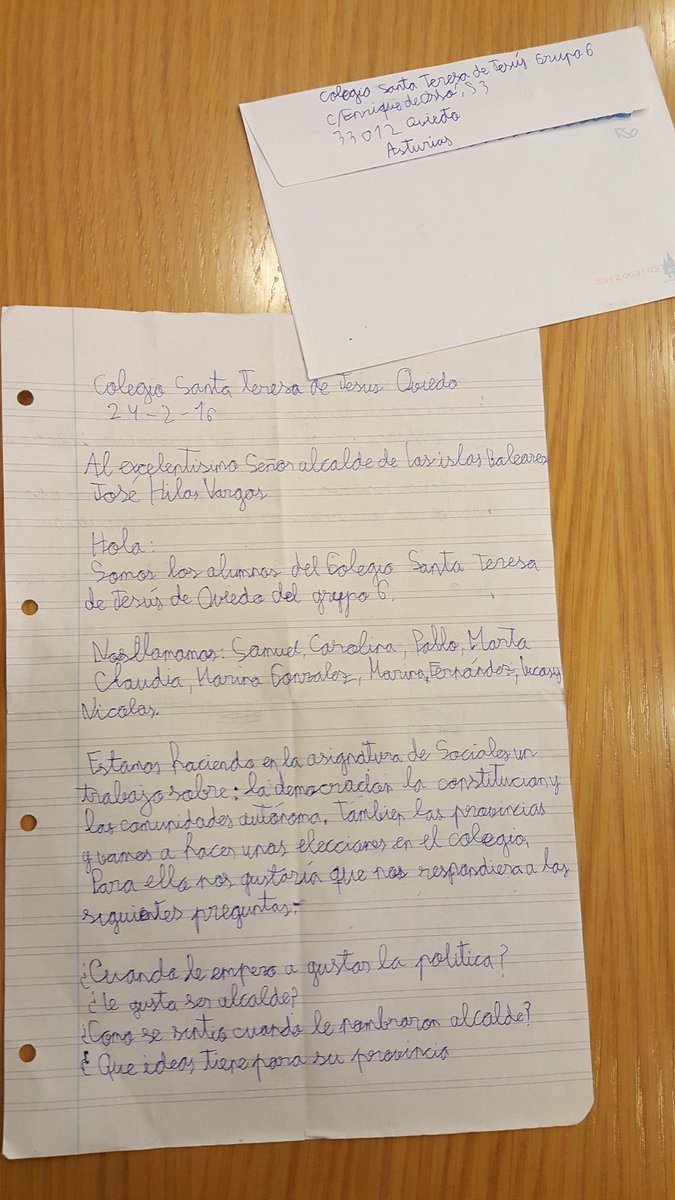 Colegio Santa Teresa de Jesús Grupo 6
C/Enrique de Ossó, 53
33012 Oviedo
Asturias
Colegio Santa Teresa de Jesus Oviedo
24-2-16
Al excelentisimo Señor alcalde de las islas Baleares
José Hilas Vargas
Hola:
Somos los alumnos del Colegio Santa Teresa
de Jesús de Oviedo del grupo 6.
Nos llamamos: Samuel, Carolina, Pablo, Marta
Claudia, Marina Gonzalez, Marina Fernández, Lucas y
Nicolas.
Estamos haciendo en la asignatura de Sociales un
trabajo sobre: la democracia, la constitucion y
las comunidades autónoma. Tambien las provincias
y vamos a hacer unas elecciones en el colegio.
Para ello nos gustaría que nos respondiera a las
siguientes preguntas:-
¿Cuando le empezo a gustar la politica?
¿Le gusta ser alcalde?
¿Como se sintio cuando le nombraron alcalde?
¿Que ideas tiene para su provincia